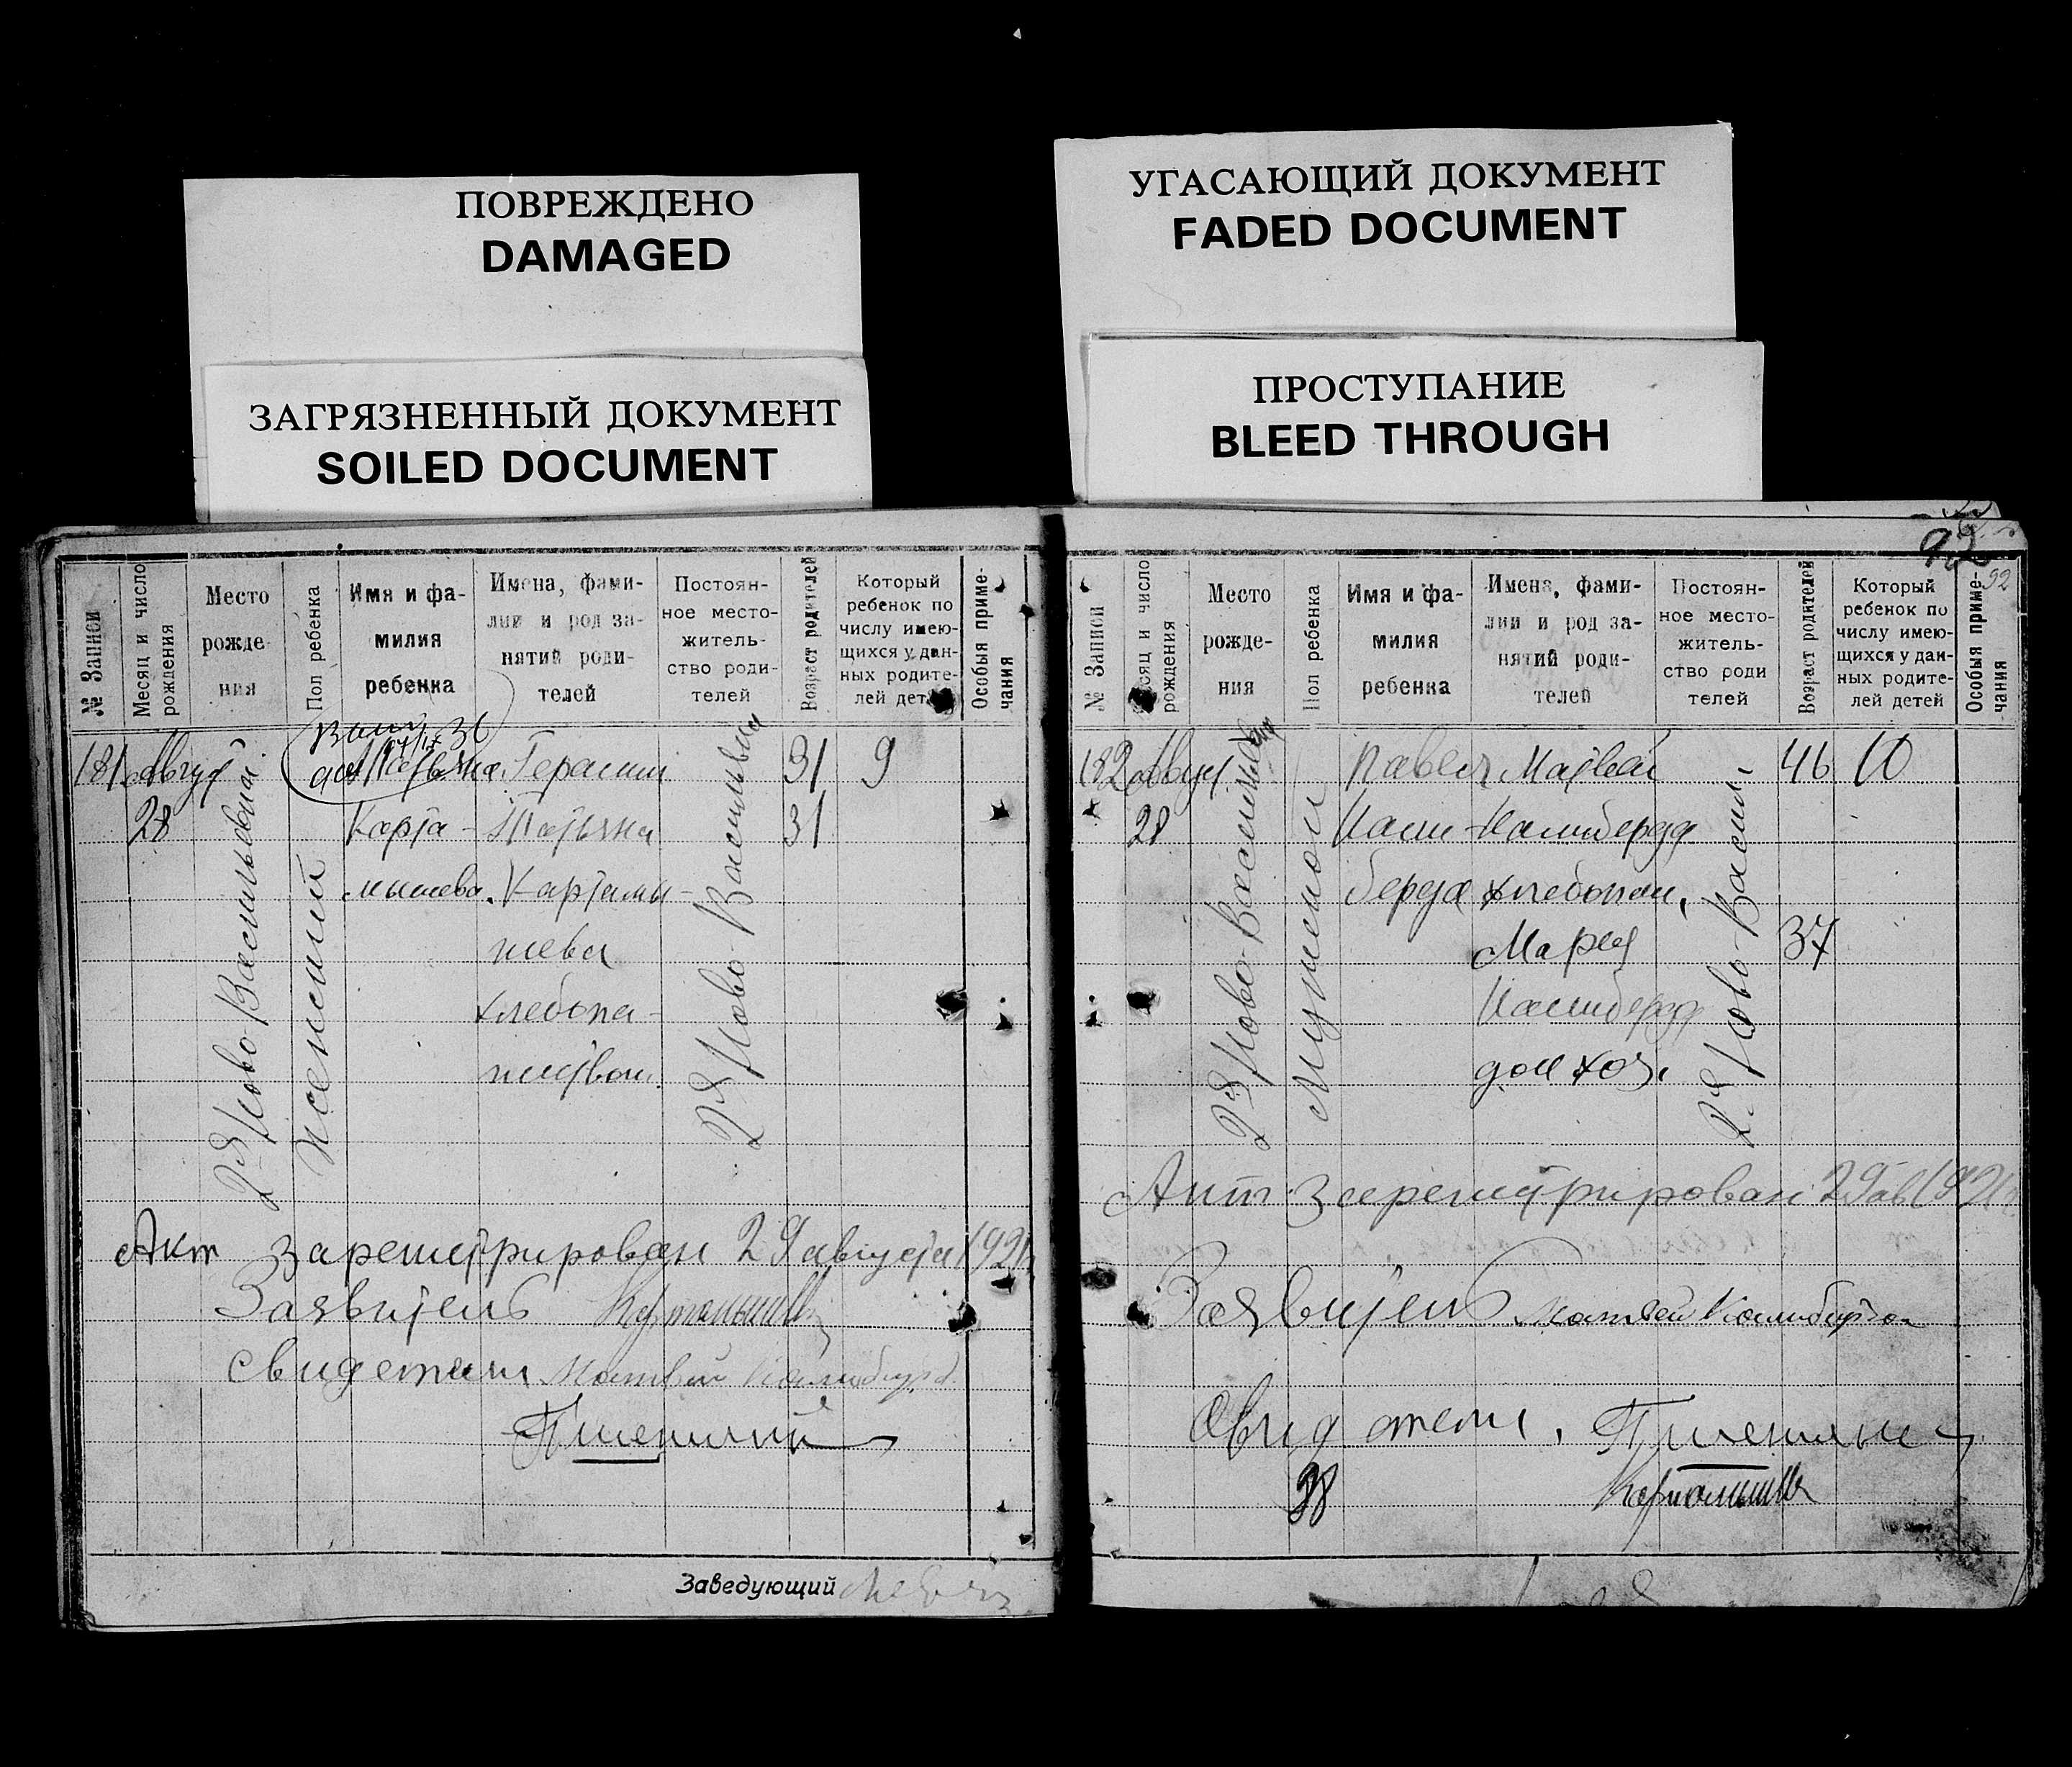 ПОВРЕЖДЕНО
DAMAGED
ЗАГРЯЗНЕННЫЙ ДОКУМЕНТ
SOILED DOCUMENT
УГАСАЮЩИЙ ДОКУМЕНТ
FADED DOCUMENT
ПРОСТУПАНИЕ
BLEED THROUGH
№ Записи
Месяц и число рождения
Место рожде-ния
Пол ребенка
Имя и фа-милия ребенка
Имена, фами-лии и род за-нятий роди-телей
Постоян-ное место-житель-ство роди-телей
Возраст родителей
Который ребенок по числу имею-щихся у дан-ных родите-лей детей
Особыя приме-чания
181 Август Татьяна Герасим 31 9
28 Карта- Татьяна 31
мышева. Картамы-
шева
хлебопа-
шеством.
2я Ново Васильевка
Женский
2я Ново Васильевка
Акт зарегистрирован 29 августа 1921
Заявитель Картамышев
Свидетели Матвей Калиберда
Пшеничный
Заведующий
92
№ Записи
Месяц и число рождения
Место рожде-ния
Пол ребенка
Имя и фа-милия ребенка
Имена, фами-лии и род за-нятий роди-телей
Постоян-ное место-житель-ство роди телей
Возраст родителей
Который ребенок по числу имею-щихся у дан-ных родите-лей детей
Особыя приме-чания
92
182 Август Павел Матвей 46 10
28 Кали- Калиберда
берда хлебопаш.
Мария 37
Калиберда
дом хоз.
2я Ново-Васильевка
Мужской
2я Ново-Васил-
Акт зарегистрирован 29 ав 1921
Заявитель Матвей Калиберда
Свидетели. Пшеничный
98 Картамышев